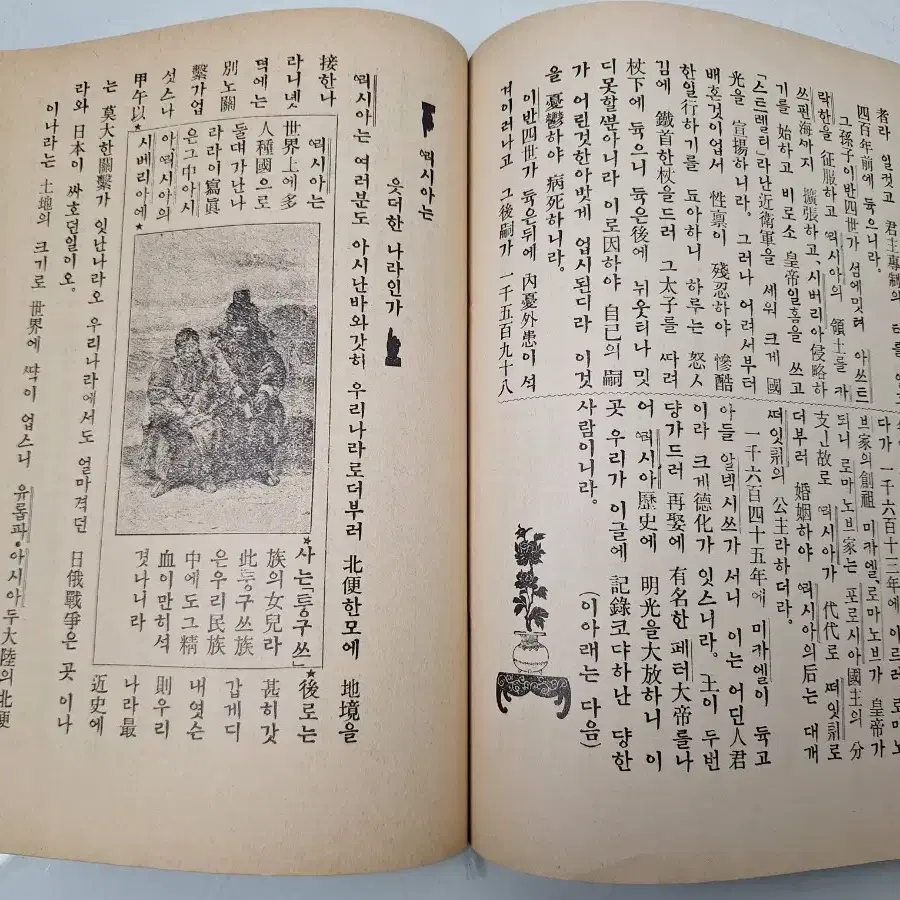 者라 일컷고 君主專制의
四百年前에 듁으니라.
그孫子이반四世가 섬에밋텨 아쓰트
락한을 征服하고 ᄙᅥ시아의 領土를 카
쓰핀海까지 擴張하고, 시버리아侵略하
기를 始하고 비로소 皇帝일홈을 쓰고
「스트렐터라난近衛軍을 세워 크게 國
光을 宣揚하니라. 그러나 어려서부터
배혼것이업서 性禀이 殘忍하야 慘酷
한일行하기를 됴아하니 하루는 怒人
김에 鐵首한杖을드러 그太子를 따려
杖下에 듁으니 듁은後에 뉘웃티나 밋
디못할분아니라 이로因하야 自己의 嗣
가 어린것한아밧게 업시된디라 이것
을 憂鬱하야 病死하니라.
이반四世가 듁은뒤에 內憂外患이 석
겨이러나고 그後嗣가 一千五百九十八
다가 一千六百十三年에 이르러 로마노
브家의創祖 미카엘로마노브가 皇帝가
되니 로마노브家는 포로시아國主의 分
支인故로 ᄙᅥ시아가 代代로 떠잇취로
더부러 婚姻하야 ᄙᅥ시아의后는 대개
떠잇취의 公主라하더라.
一千六百四十五年에 미카엘이 듁고
아들 알넥시쓰가 서니 이는 어딘人君
이라 크게德化가 잇스니라. 王이 두번
댱가드러 再娶에 有名한 페터大帝를나
어 ᄙᅥ시아歷史에 明光을大放하니 이
곳 우리가 이글에 記錄코댜하난 당한
사람이니라. (이아래는 다음)
ᄙᅥ시아는
읏더한 나라인가
ᄙᅥ시아는 여러분도 아시난바와갓히 우리나라로더부러 北便한모에 地境을
接한나
라니녯
뎍에는
別노關
繫가업
섯스나
甲午以
後로는
甚히갓
갑게디
내엿슨
則우리
나라最
近史에
는 莫大한關繫가 잇난나라오 우리나라에서도 얼마겨던 日俄戰爭은 곳 이나
라와 日本이 싸호던일이오.
이나라는 土地의 크기로 世界에 딱이 업스니 유롭파·아시아 두大陸의北便
ᄙᅥ시아는
世界上에多
人種國으로
둘댸가난나
라라이寫眞
은그中아시
아ᄙᅥ시아의
시베리아에
사는「퉁구쓰」
族의女兒라
此퉁구쓰族
은우리民族
中에도그精
血이만히석
겻나니라